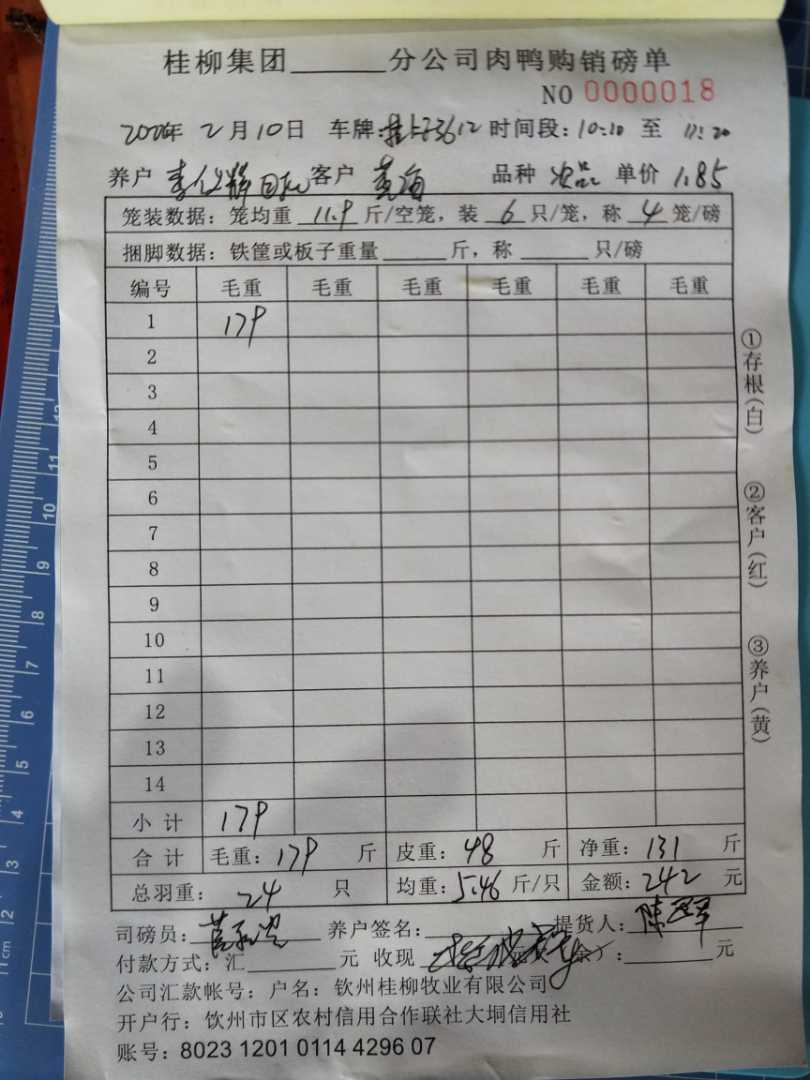 桂柳集团______分公司肉鸭购销磅单
NO 0000018
年 2月10日 车牌: 3612 时间段: 10:10 至 11:20
养户 李 静 客户 黄海 品种 次品 单价 1.85
笼装数据: 笼均重 11.9 斤/空笼, 装 6 只/笼, 称 4 笼/磅
捆脚数据: 铁筐或板子重量______斤, 称______只/磅
编号 毛重 毛重 毛重 毛重 毛重 毛重
1 179
2
3
4
5
6
7
8
9
10
11
12
13
14
小计 179
合计 毛重: 179 斤 皮重: 48 斤 净重: 131 斤
总羽重: 24 只 均重: 5.46 斤/只 金额: 242 元
司磅员: 养户签名: 提货人: 陈
付款方式: 汇______元 收现 : ______元
公司汇款帐号: 户名: 钦州桂柳牧业有限公司
开户行: 饮州市区农村信用合作联社大垌信用社
账号: 8023 1201 0114 4296 07
①存根(白)
②客户(红)
③养户(黄)
5
6
7
8
9
10
11
12
4
3
2
1cm